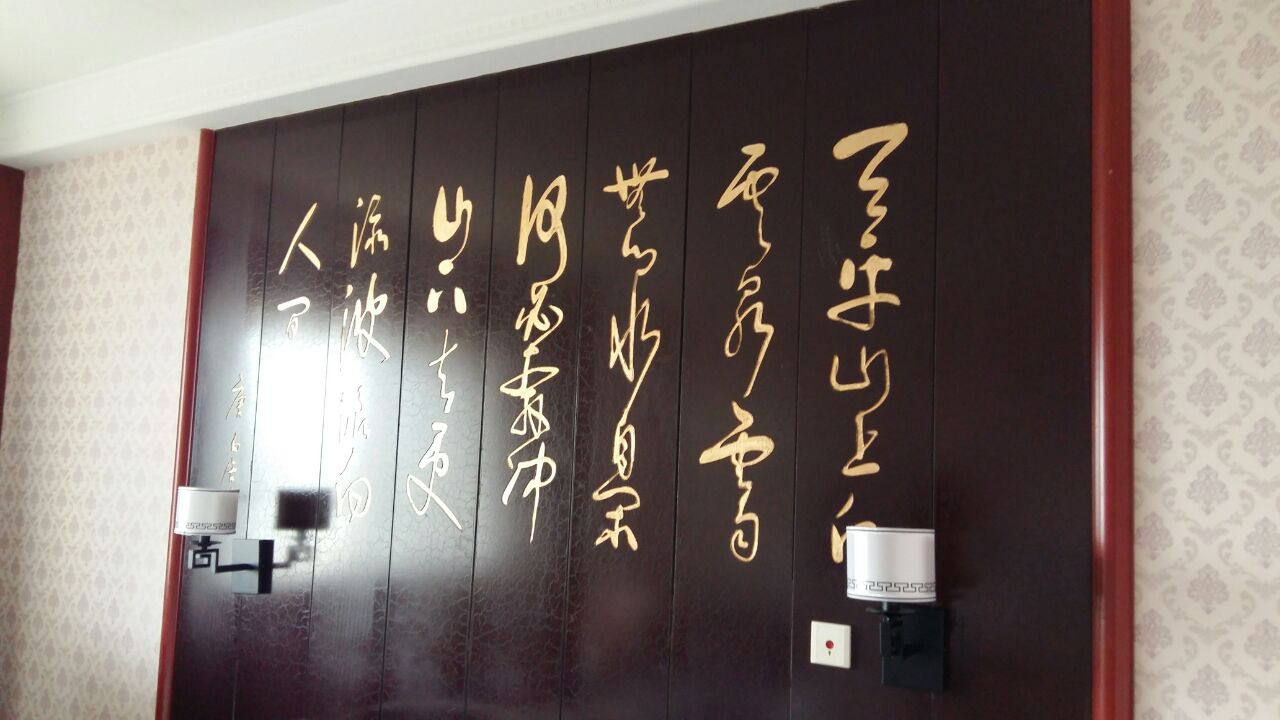 天平山上白
云泉雲自
無心水自闲
何必奔冲
山下去更
添波浪向
人间
唐白居